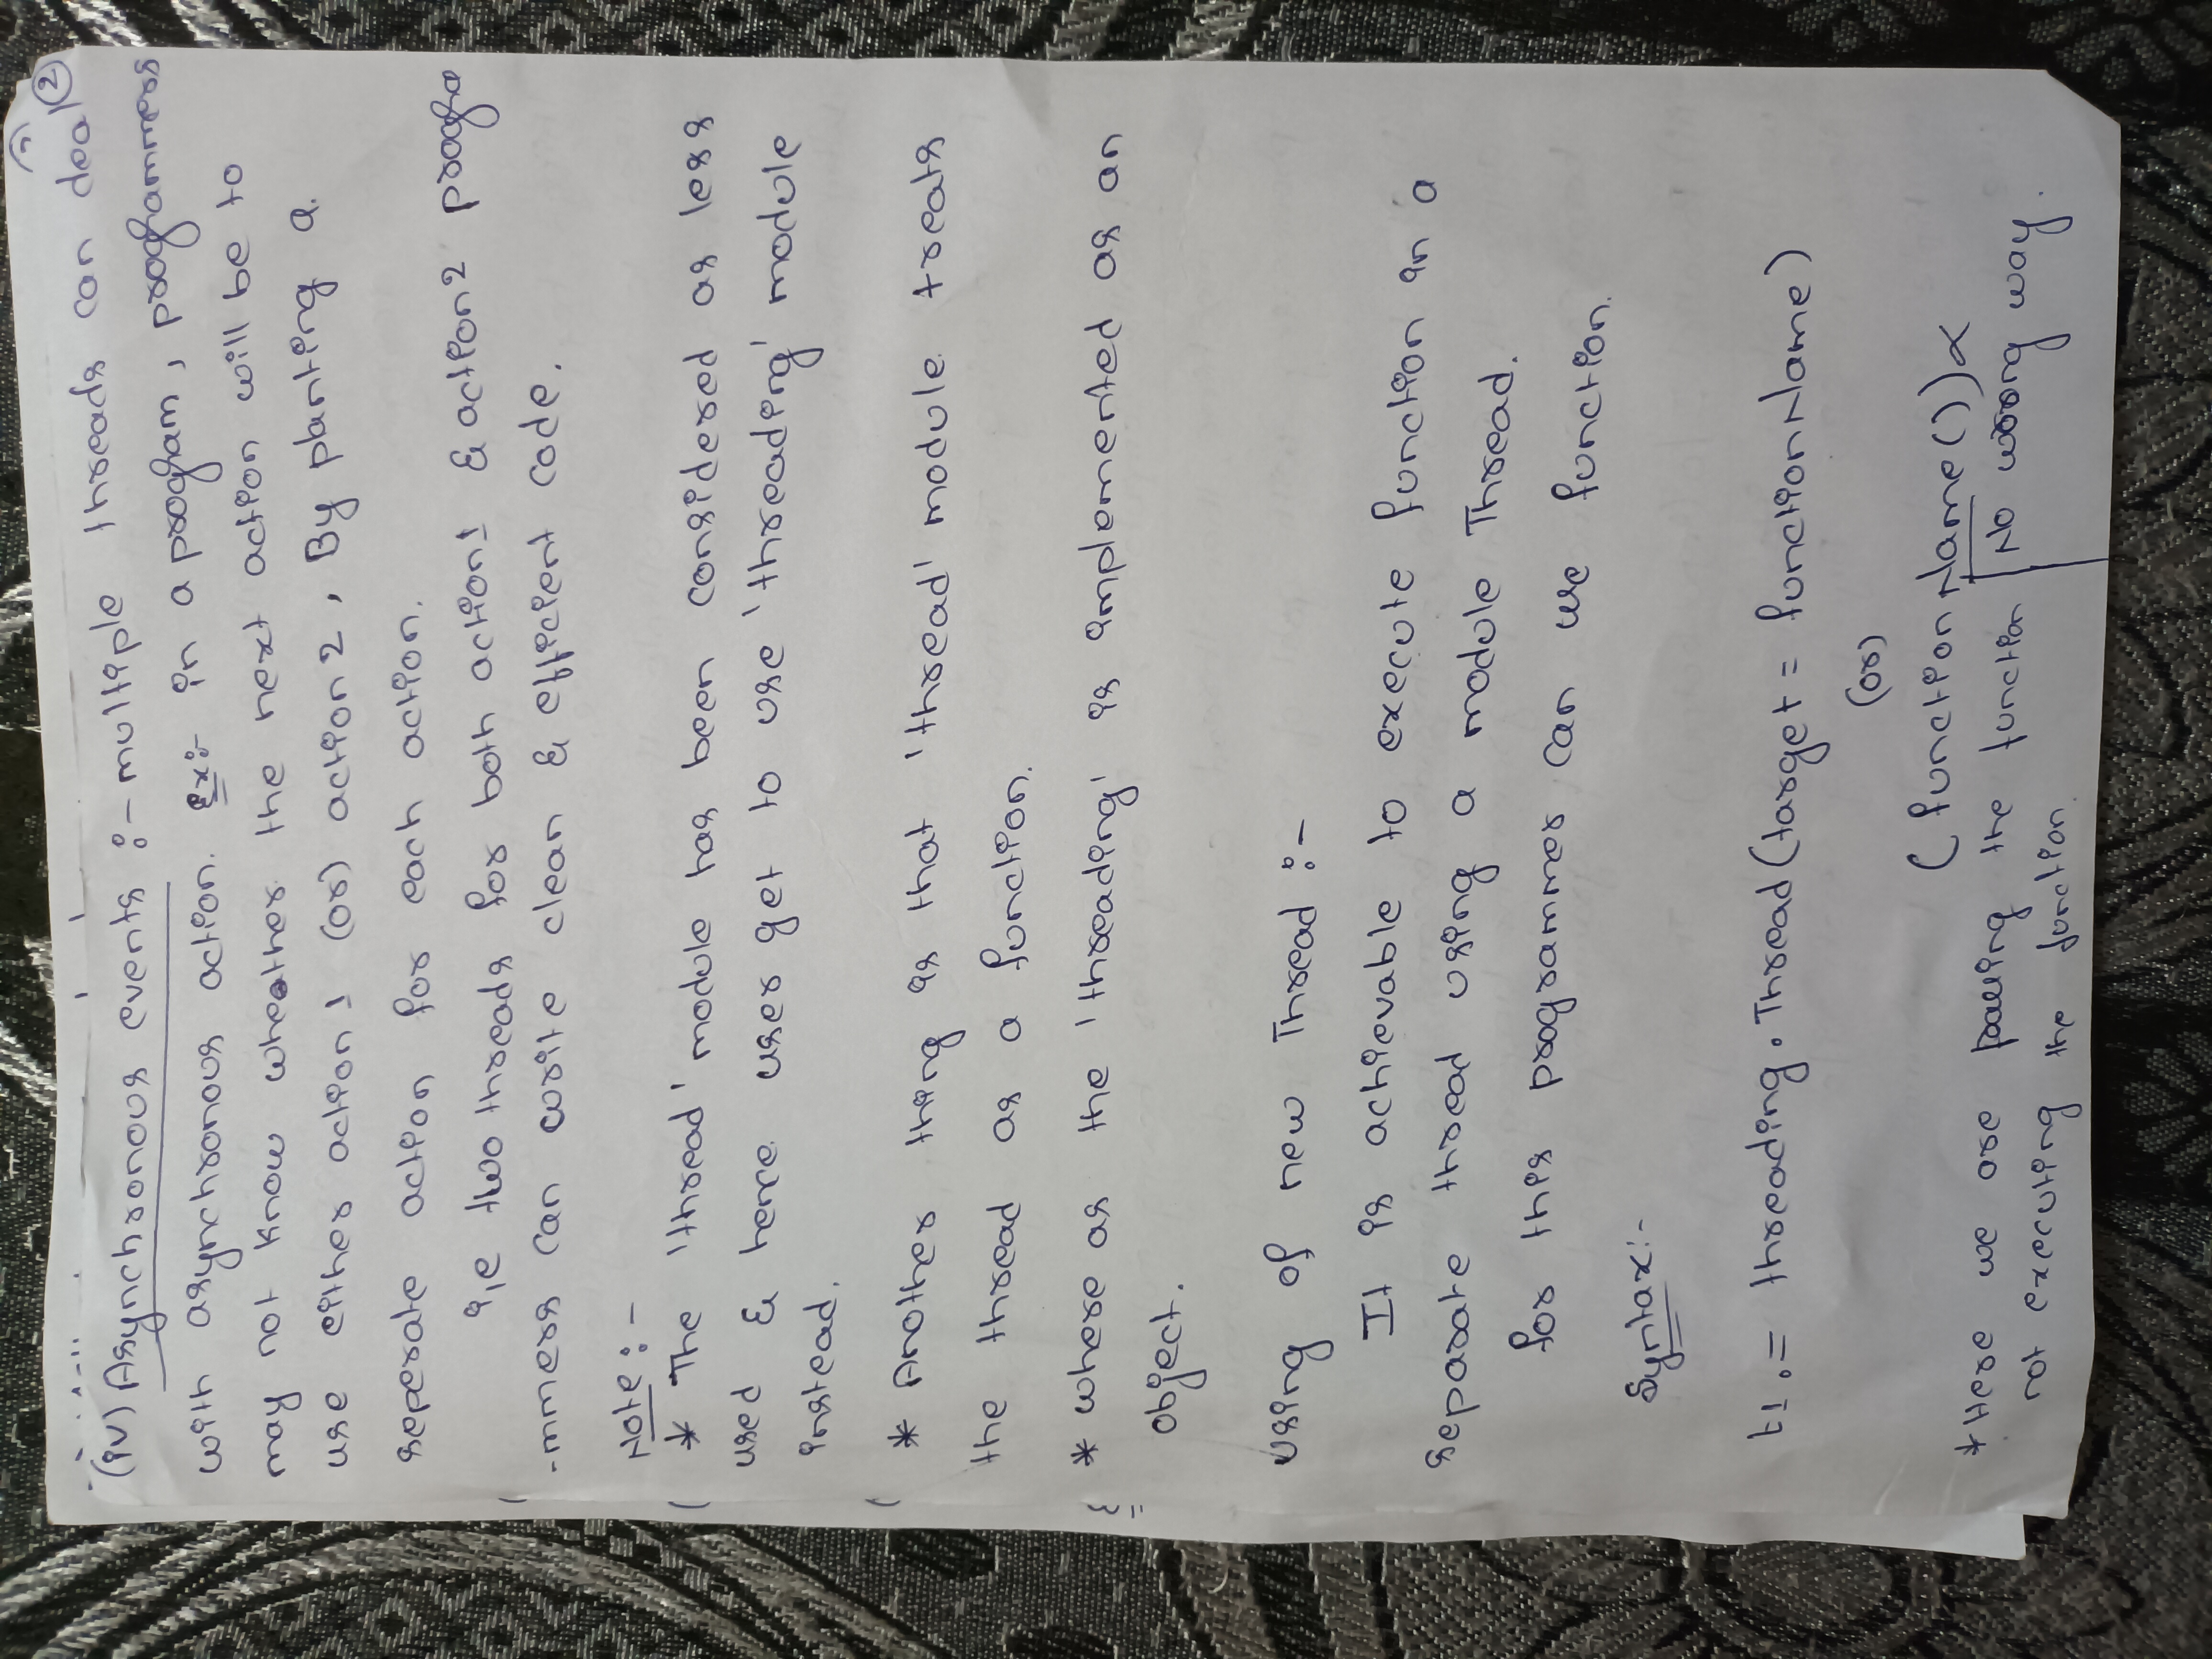 2
(iv) Asynchronous events :- multiple threads can deal
with asynchronous action. Ex:- in a program, programmers
may not know wheather the next action will be to
use either action1 (or) action2, By planting a
seperate action for each action.
i,e two threads for both action1 & action2 progra
-mmers can write clean & efficient code.
Note :-
* The 'thread' module has been considered as less
used & hence user get to use 'threading' module
instead.
* Another thing is that 'thread' module treats
the thread as a function.
* where as the 'threading' is implemented as an
object.
Using of new Thread :-
It is achievable to execute function in a
separate thread using a module Thread.
for this programmer can use function.
Syntax:-
t1 = threading.Thread(target = functionName)
(or)
(functionName())
*Here we are passing the function
not executing the function.
No wrong way.